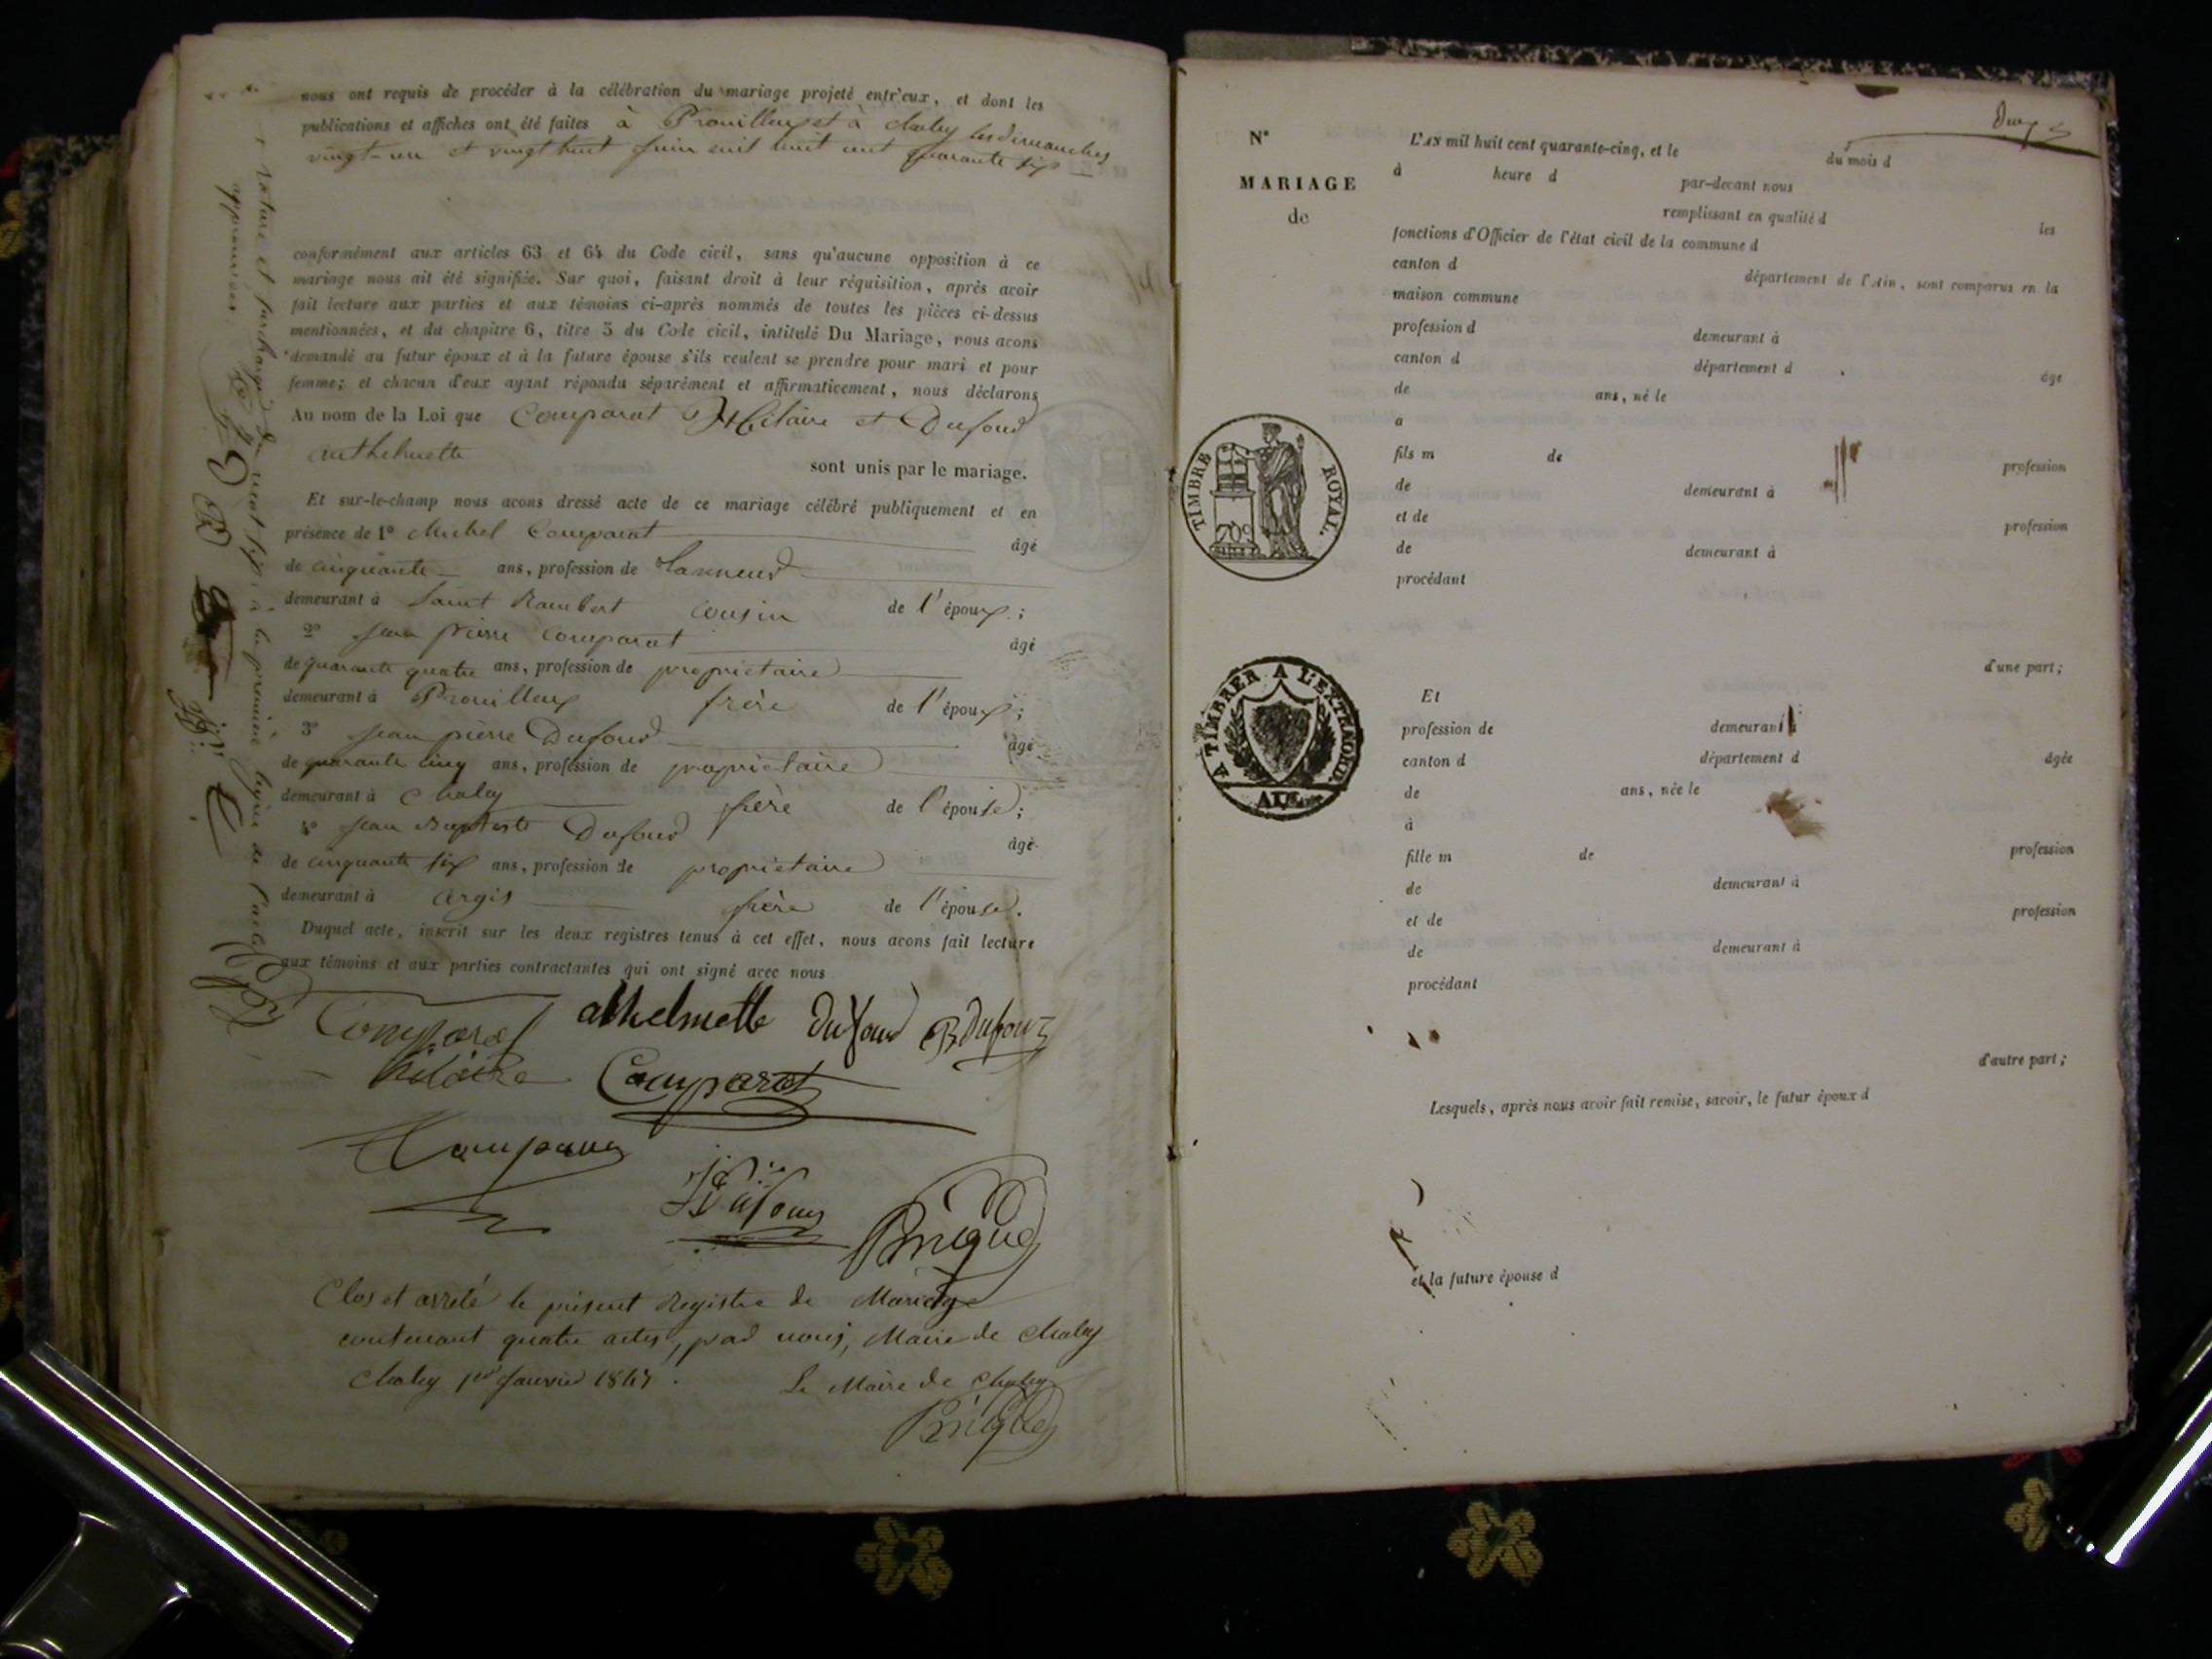 nous ont requis de procéder à la célébration du mariage projeté entr'eux, et dont les
publications et affiches ont été faites à Prouilleux et à Chaley les dimanches
vingt-un et vingt huit juin mil huit cent quarante six
conformément aux articles 63 et 64 du Code civil, sans qu'aucune opposition à ce
mariage nous ait été signifiée. Sur quoi, faisant droit à leur réquisition, après avoir
fait lecture aux parties et aux témoins ci-après nommés de toutes les pièces ci-dessus
mentionnées, et du chapitre 6, titre 5 du Code civil, intitulé Du Mariage, nous avons
demandé au futur époux et à la future épouse s'ils veulent se prendre pour mari et pour
femme; et chacun d'eux ayant répondu séparément et affirmativement, nous déclarons
Au nom de la Loi que Comparat Hilaire et Dufour
anthelmette
sont unis par le mariage.
Et sur-le-champ nous avons dressé acte de ce mariage célébré publiquement et en
présence de 1° Michel Comparat âgé
de cinquante ans, profession de Tanneur
demeurant à Saint Rambert cousin de l'époux;
2° Jean pierre Comparat âgé
de quarante quatre ans, profession de propriétaire
demeurant à Prouilleux frère de l'époux;
3° Jean pierre Dufour âgé
de quarante cinq ans, profession de propriétaire
demeurant à Chaley frère de l'épouse;
4° Jean Baptiste Dufour âgé
de cinquante six ans, profession de propriétaire
demeurant à argis frère de l'épouse.
Duquel acte, inscrit sur les deux registres tenus à cet effet, nous avons fait lecture
aux témoins et aux parties contractantes qui ont signé avec nous
Comparat athelmette dufour B Dufour
hilaire Comparat
Comparat
Dufour
Brigue
Clos et arrêté le présent Registre de Mariage
contenant quatre actes, par nous, Maire de Chaley
Chaley 1er Janvier 1847. Le Maire de Chaley
Brigue
rature et surcharge du mot six à la première ligne de l'acte
approuvées
N°
MARIAGE
de
L'AN mil huit cent quarante-cinq, et le du mois d
à heure d par-devant nous
remplissant en qualité d les
fonctions d'Officier de l'état civil de la commune d
canton d département de l'Ain, sont comparus en la
maison commune
profession d demeurant à
canton d département d âgé
de ans, né le
a
fils m de profession
de demeurant à
et de profession
de demeurant à
procédant
d'une part;
Et
profession de demeurant à
canton d département d âgée
de ans, née le
à
fille m de profession
de demeurant à
et de profession
de demeurant à
procédant
d'autre part;
Lesquels, après nous avoir fait remise, savoir, le futur époux d
et la future épouse d
TIMBRE ROYAL.
A TIMBRER A L'EXTRAORD.
AIN.